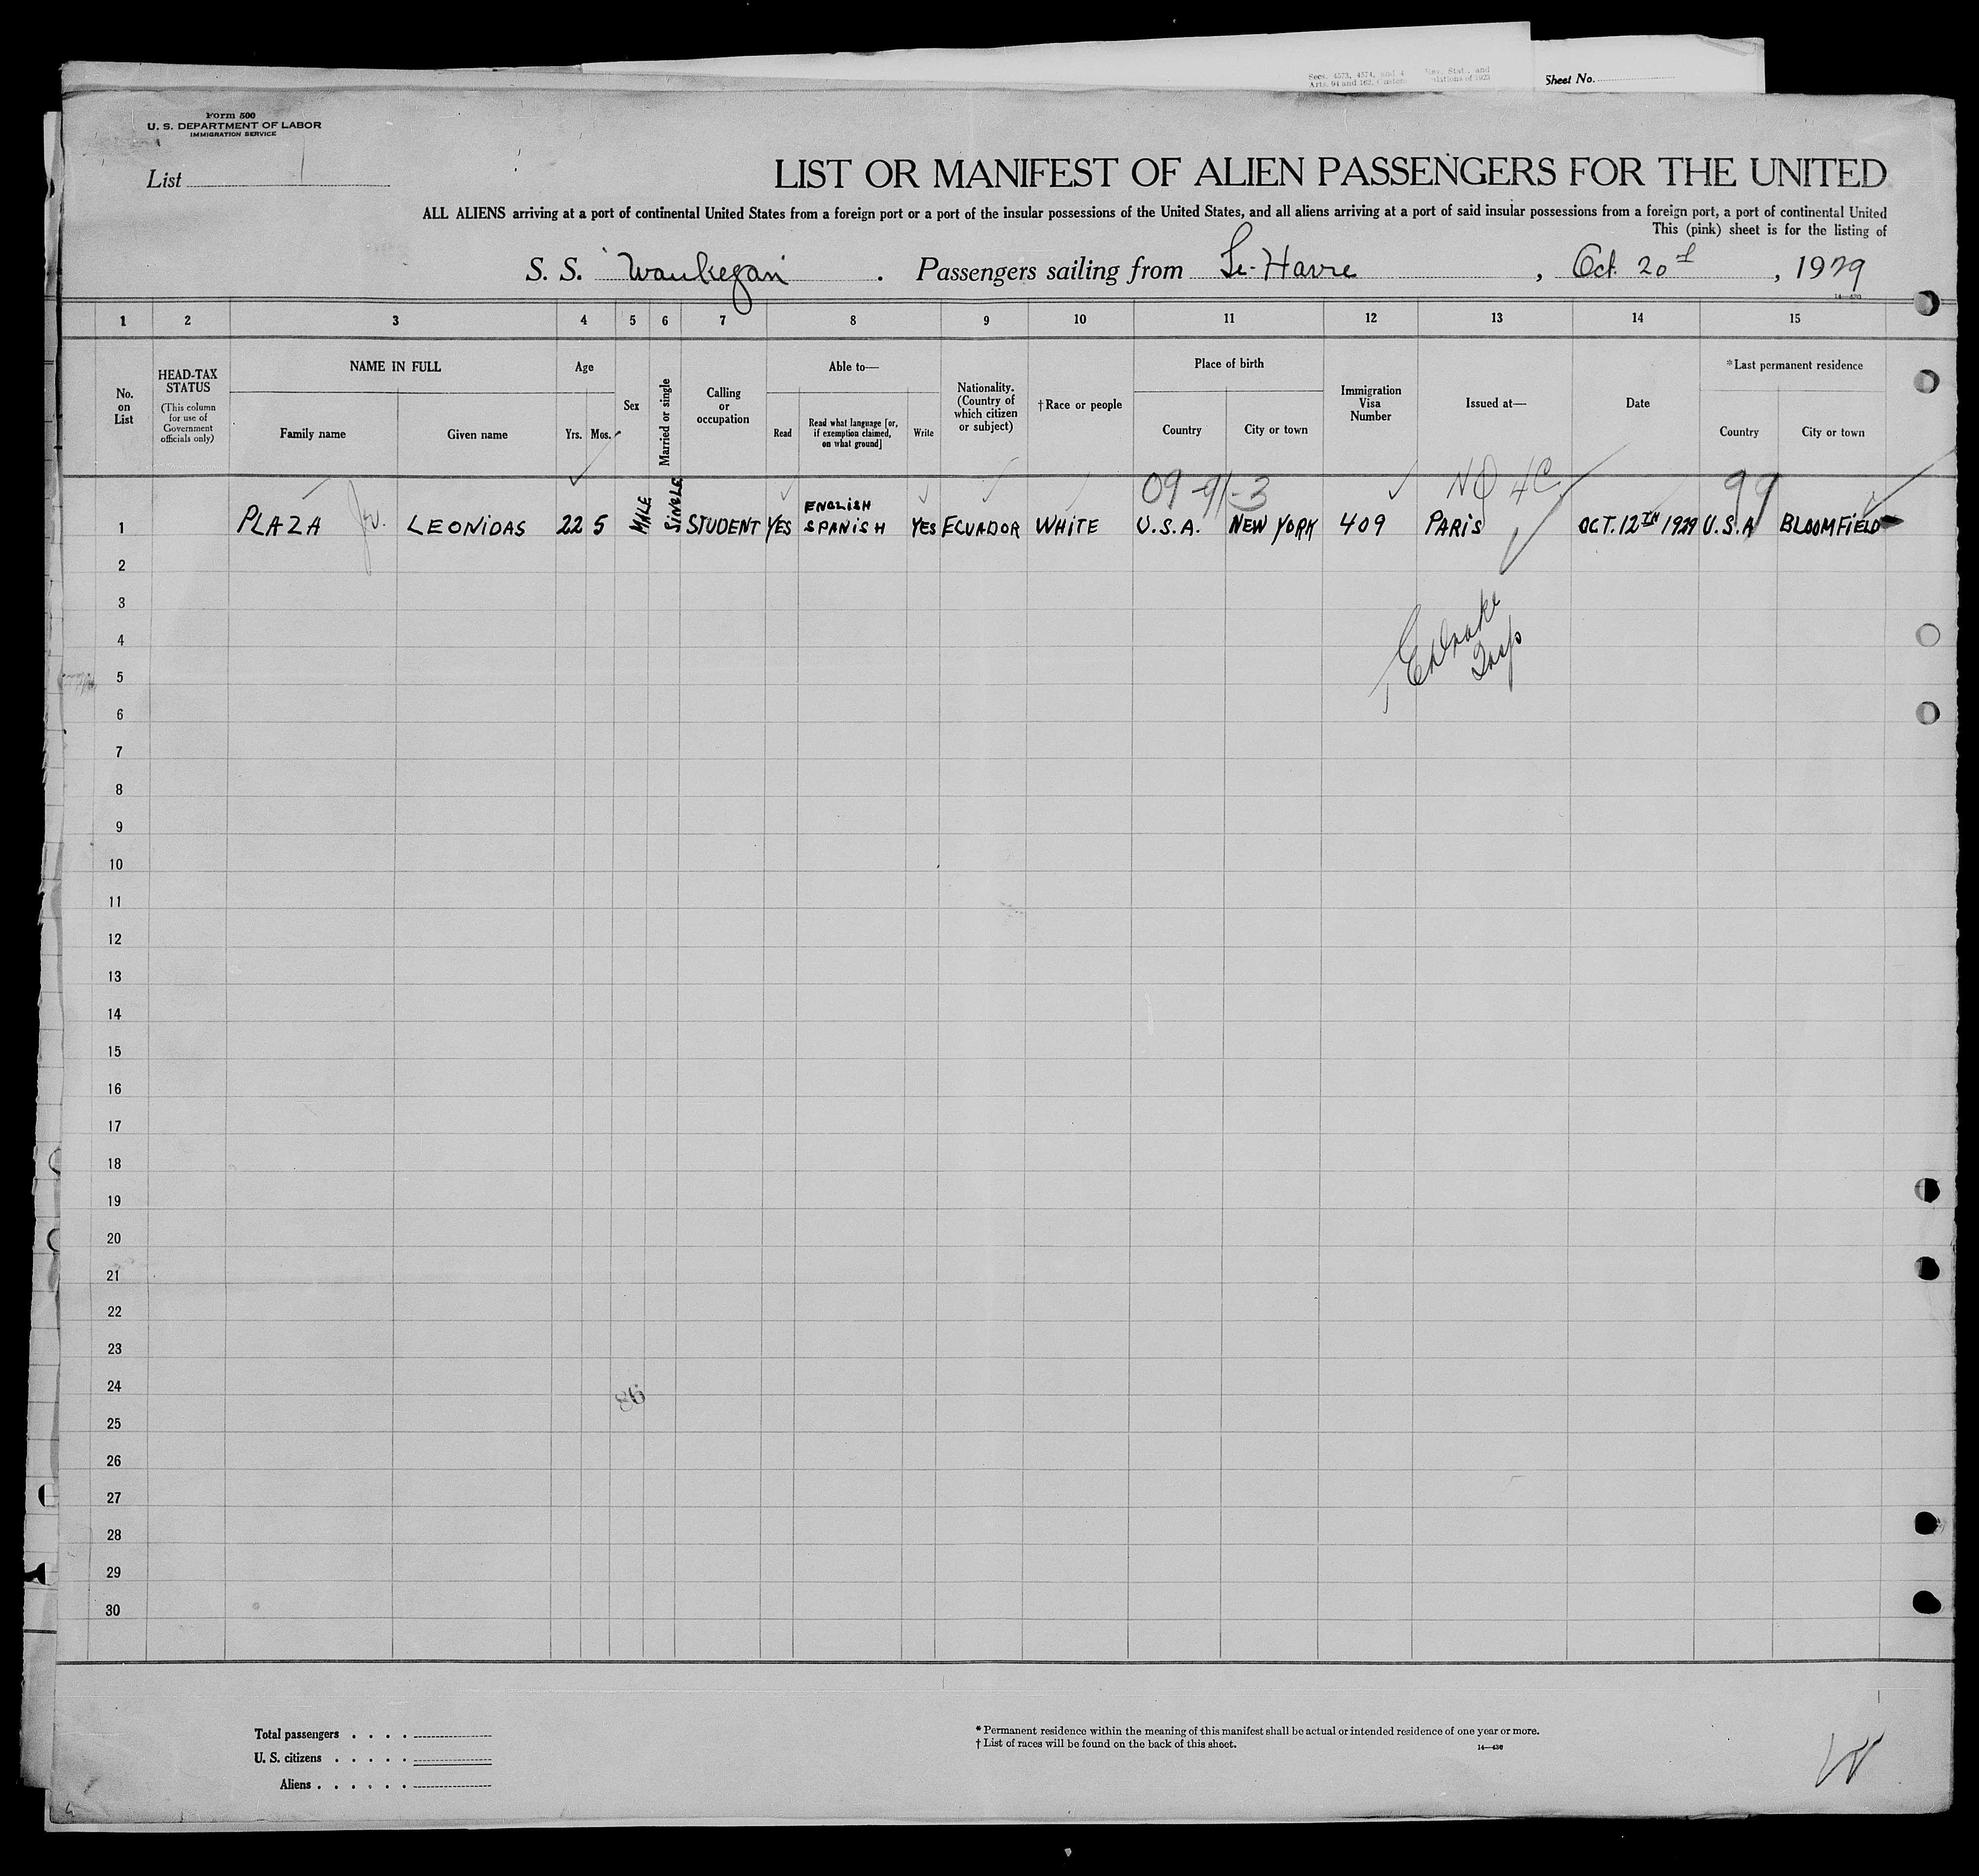 Secs. 4573, 4574, and 4 Rev. Stat., and
Arts. 94 and 162, Custom ulations of 1923
Sheet No.
Form 500
U. S. DEPARTMENT OF LABOR
IMMIGRATION SERVICE
List 1
LIST OR MANIFEST OF ALIEN PASSENGERS FOR THE UNITED
ALL ALIENS arriving at a port of continental United States from a foreign port or a port of the insular possessions of the United States, and all aliens arriving at a port of said insular possessions from a foreign port, a port of continental United
This (pink) sheet is for the listing of
S. S. Waukegan . Passengers sailing from Le-Havre , Oct. 20 , 1929
14—430
1 2 3 4 5 6 7 8 9 10 11 12 13 14 15
No. on List
HEAD-TAX STATUS
(This column for use of Government officials only)
NAME IN FULL
Family name Given name
Age
Yrs. Mos.
Sex
Married or single
Calling or occupation
Able to—
Read
Read what language [or, if exemption claimed, on what ground]
Write
Nationality. (Country of which citizen or subject)
†Race or people
Place of birth
Country City or town
Immigration Visa Number
Issued at—
Date
*Last permanent residence
Country City or town
09-91-3 NQ 4C 99
1 PLAZA Jr. LEONIDAS 22 5 MALE SINGLE STUDENT YES ENGLISH SPANISH YES ECUADOR WHITE U.S.A. NEW YORK 409 PARIS OCT. 12TH 1929 U.S.A BLOOMFIELD
2
3
4
5
6
7
8
9
10
11
12
13
14
15
16
17
18
19
20
21
22
23
24
25
26
27
28
29
30
Total passengers . . . .
U. S. citizens . . . . .
Aliens . . . . . .
* Permanent residence within the meaning of this manifest shall be actual or intended residence of one year or more.
† List of races will be found on the back of this sheet.
14—430